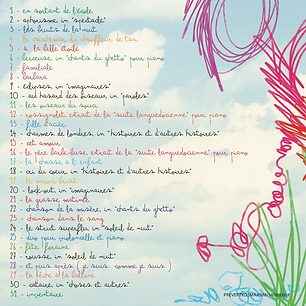 1 - en sortant de l'école
2 - aphorisme, in "spectacle"
3 - les bruits de la nuit
4 - le cauchemar du chauffeur de taxi
5 - à la belle étoile
6 - berceuse, in "chants du ghetto" pour piano
7 - familiale
8 - barbara
9 - éclipses, in "imaginaires"
10 - au hasard des oiseaux, in "paroles"
11 - les oiseaux du souci
12 - rossignolet, extrait de la "suite languedocienne" pour piano
13 - fille d'acier
14 - charmes de londres, in "histoires et d'autres histoires"
15 - cet amour
16 - le père bule-buse extrait de la "suite languedocienne" pour piano
17 - la chasse à l'enfant
18 - au coin du coeur, in "histoires et d'autres histoires"
20 - lock-out, in "imaginaires"
21 - la grasse matinée
22 - chanson de la misère, in "chants du ghetto"
23 - chanson dans le sang
24 - le strict superflu, in "soleil de nuit"
25 - duo pour violoncelle et piano
26 - fête foraine
27 - rousse, in "soleil de nuit"
28 - et puis après (je suis comme je suis)
29 - la pêche à la baleine
30 - in "choses et autres"
31 - inventaire